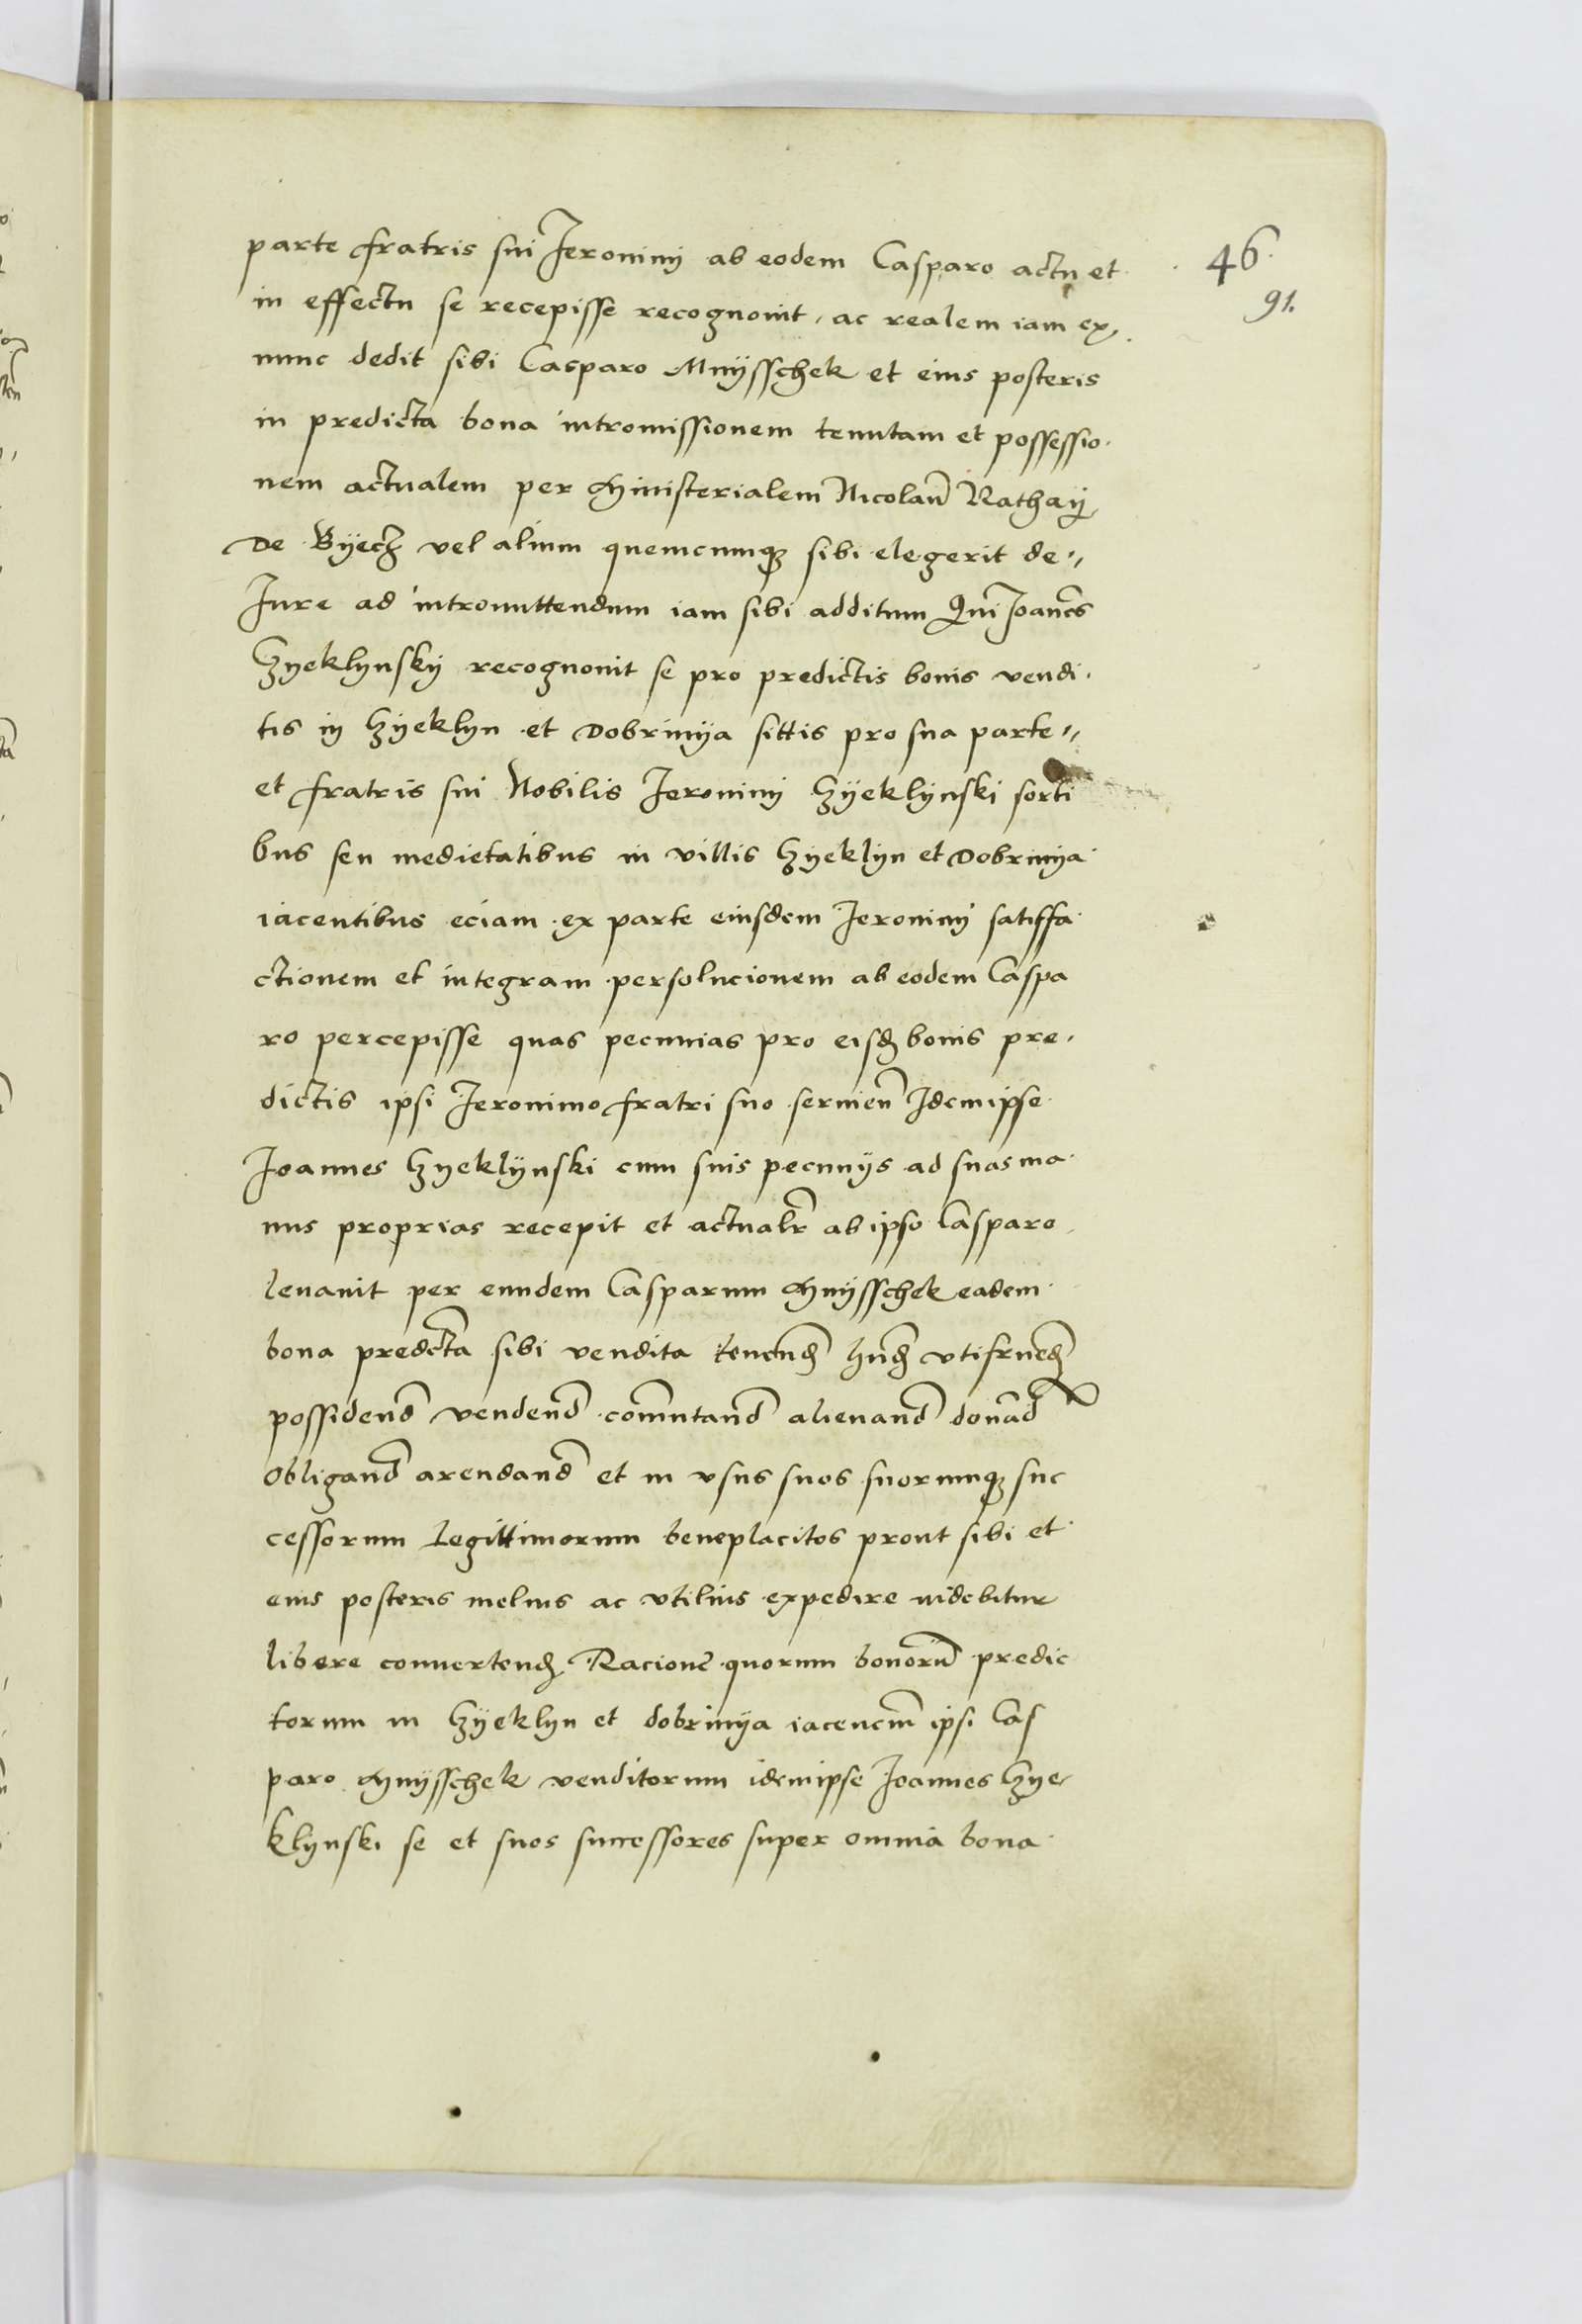 parte fratris sui Ieronimj ab eodem Casparo actu et
46
91.
in effectu se recepisse recognouit, ac realem iam ex,
nunc dedit sibi Casparo Mnÿsschek et eius posteris
in predicta bona intromissionem tenutam et possessio
nem actualem per Ministerialem Nicolaū Rathaÿ
De Bÿecz vel alium quemcumqꝫ sibi elegerit de,,
Iure ad intromittendum iam sibi additum Qui Joanēs
Czyeklynskÿ recognouit se pro predictis bonis vendi.
tis in Czÿeklyn et Dobrinÿa sittis pro sua parte,,
et fratris sui Nobilis Ieronimj Czÿeklÿnski sorti
bus seu medietatibus in villis Czÿeklÿn et Dobrinÿa
iacentibus eciam ex parte eiusdem Ieronimj satisffa
ctionem et integram persolucionem ab eodem Caspa
ro percepisse quas pecunias pro eisd̄ bonis pre,
dictis ipsi Ieronimo fratri suo seruien̄ Idemipse
Joannes Czyeklÿnski cum suis pecunÿs ad suas ma
nus proprias recepit et actualr̄ ab ipso Casparo
leuauit per eundem Casparum Mnÿsschek eadem
bona predcta sibi vendita tenend̄ hnd̄ vtifrued̄
possidend̄ vendend̄ com̄utand̄ alienand̄ donād̄
obligand̄ arendand̄ et in vsus suos suorumqꝫ suc
cessorum legittimorum beneplacitos prout sibi et
eius posteris melius ac vtilius expedire uidebitur
libere conuertend̄ Racione quorum bonorū predic
torum in Czÿeklyn et dobrinÿa iacencm̄ ipsi Cas
paro Mnÿsschek venditorum idemipse Joannes Czye
klÿnski se et suos successores super omnia bona